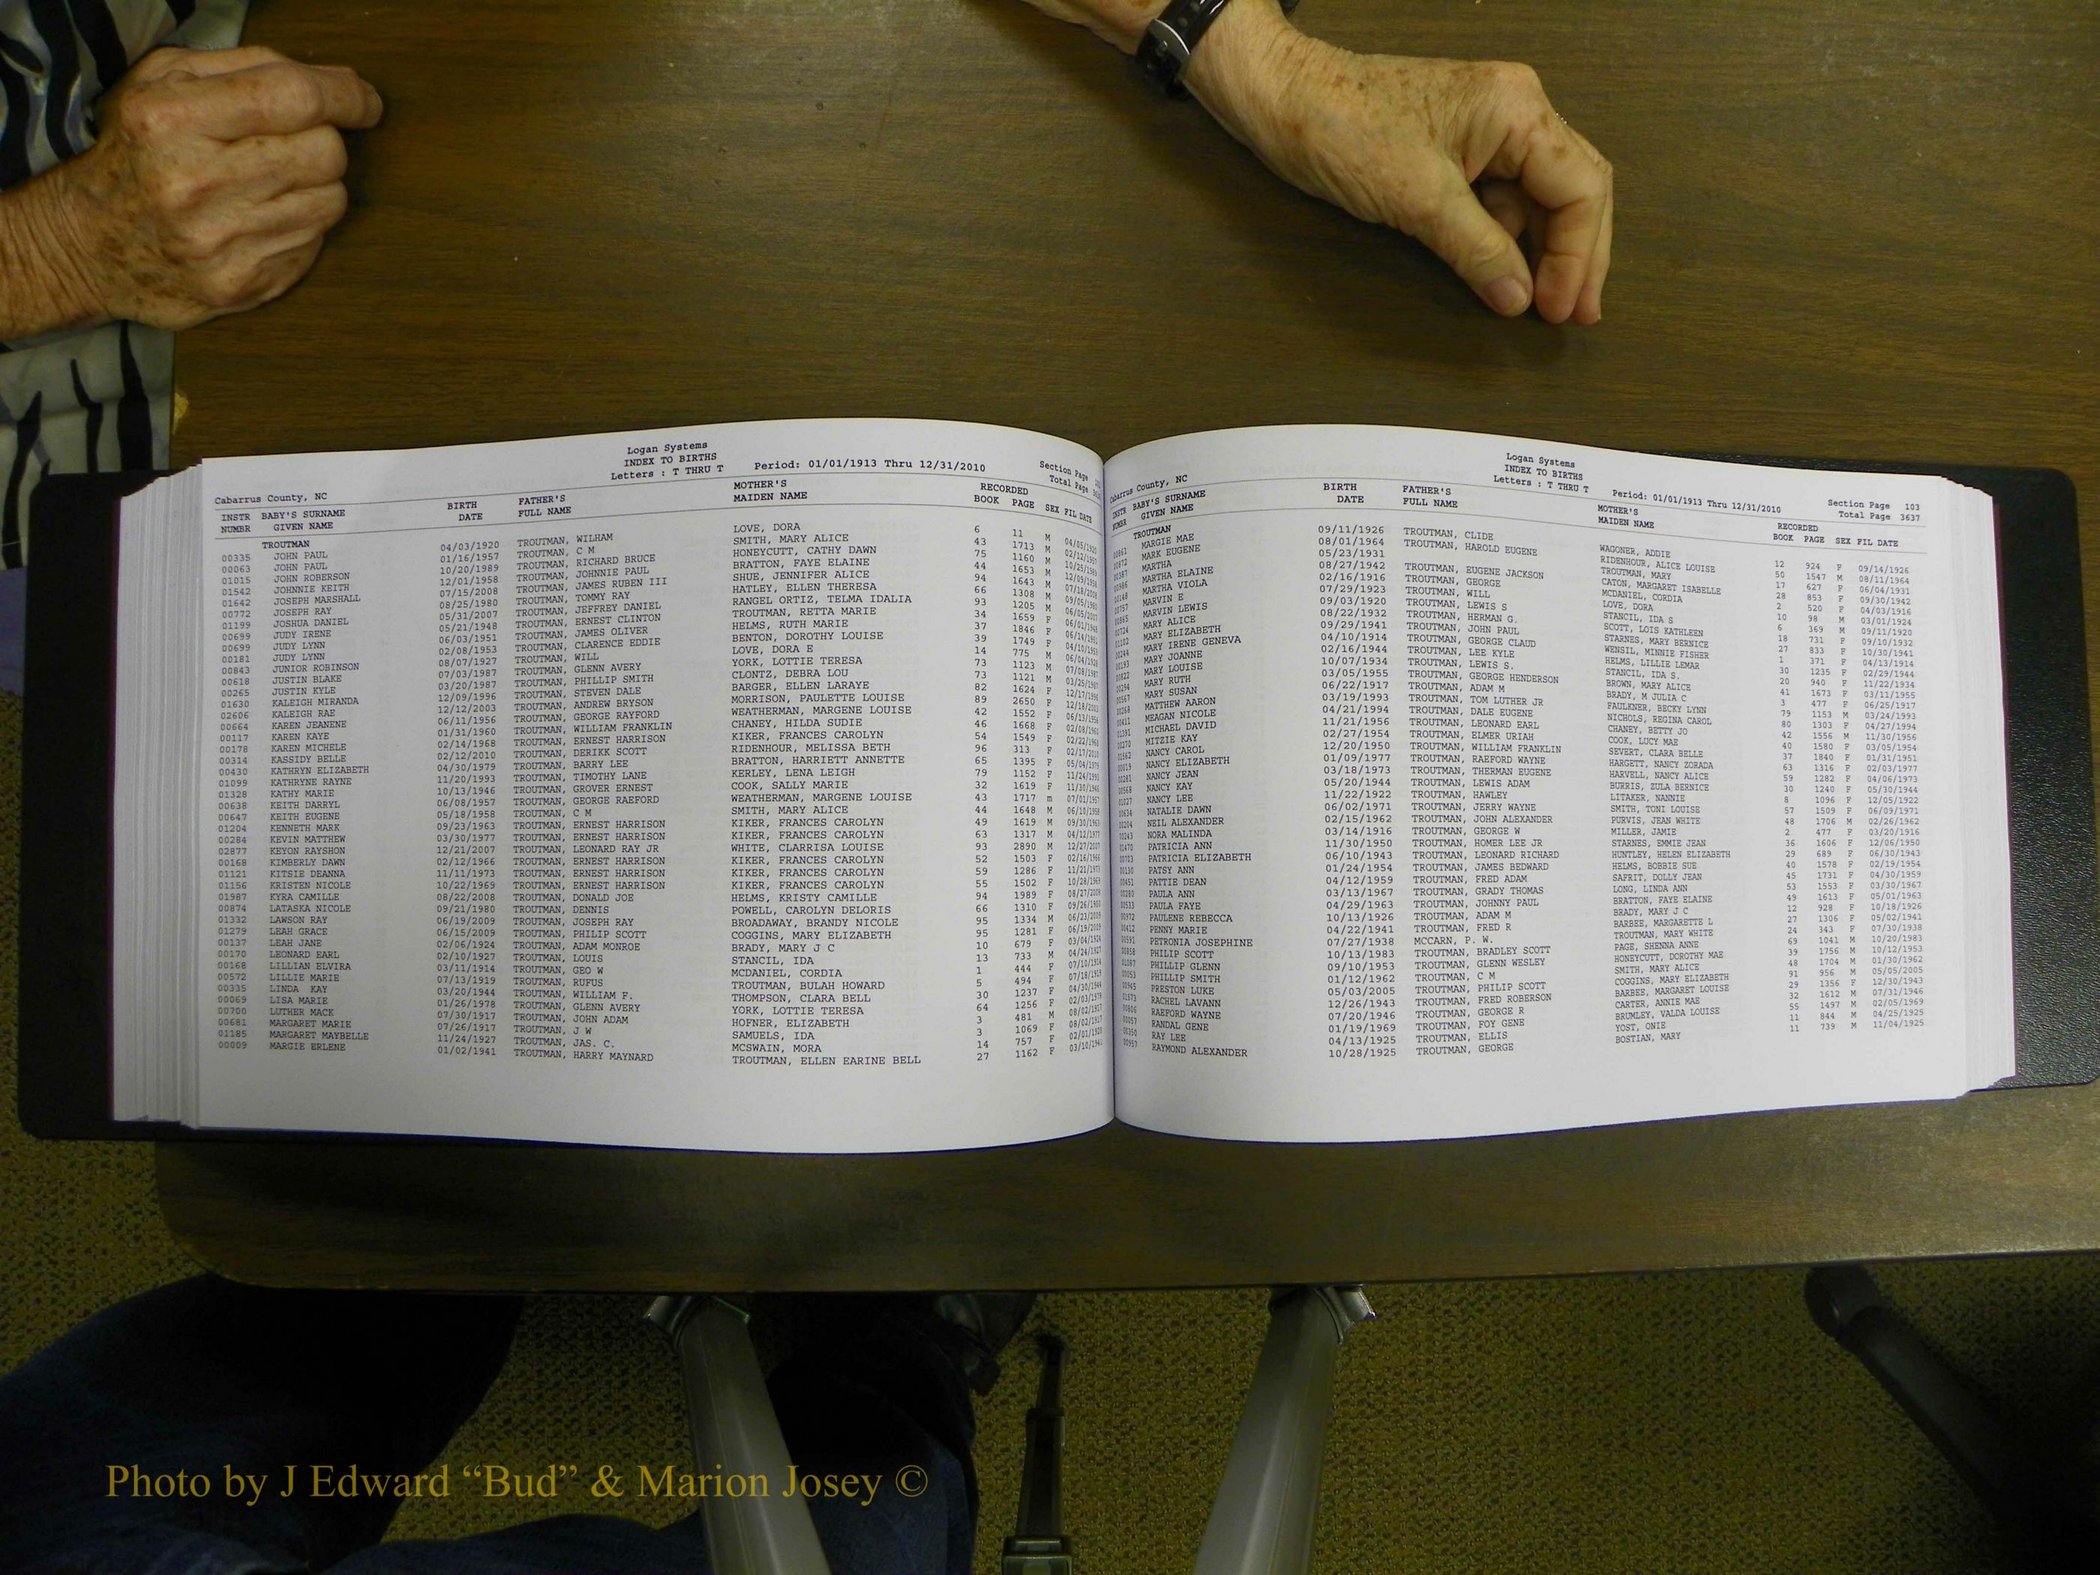 Logan Systems
INDEX TO BIRTHS
Letters : T THRU T Period: 01/01/1913 Thru 12/31/2010
Section Page
Total Page
Cabarrus County, NC
INSTR BABY'S SURNAME BIRTH FATHER'S MOTHER'S RECORDED
NUMBR GIVEN NAME DATE FULL NAME MAIDEN NAME BOOK PAGE SEX FIL DATE
TROUTMAN
00335 JOHN PAUL 04/03/1920 TROUTMAN, WILHAM LOVE, DORA 6 11 M 04/05/1920
00063 JOHN PAUL 01/16/1957 TROUTMAN, C M SMITH, MARY ALICE 43 1713 M 02/12/1957
01015 JOHN ROBERSON 10/20/1989 TROUTMAN, RICHARD BRUCE HONEYCUTT, CATHY DAWN 75 1160 M 10/25/1989
01542 JOHNNIE KEITH 12/01/1958 TROUTMAN, JOHNNIE PAUL BRATTON, FAYE ELAINE 44 1653 M 12/09/1958
01642 JOSEPH MARSHALL 07/15/2008 TROUTMAN, JAMES RUBEN III SHUE, JENNIFER ALICE 94 1643 M 07/18/2008
00772 JOSEPH RAY 08/25/1980 TROUTMAN, TOMMY RAY HATLEY, ELLEN THERESA 66 1308 M 09/05/1980
01199 JOSHUA DANIEL 05/31/2007 TROUTMAN, JEFFREY DANIEL RANGEL ORTIZ, TELMA IDALIA 93 1205 M 06/05/2007
00699 JUDY IRENE 05/21/1948 TROUTMAN, ERNEST CLINTON TROUTMAN, RETTA MARIE 34 1659 F 06/01/1948
00699 JUDY LYNN 06/03/1951 TROUTMAN, JAMES OLIVER HELMS, RUTH MARIE 37 1846 F 06/14/1951
00181 JUDY LYNN 02/08/1953 TROUTMAN, CLARENCE EDDIE BENTON, DOROTHY LOUISE 39 1749 F 04/10/1953
00843 JUNIOR ROBINSON 08/07/1927 TROUTMAN, WILL LOVE, DORA E 14 775 M 06/04/1928
00618 JUSTIN BLAKE 07/03/1987 TROUTMAN, GLENN AVERY YORK, LOTTIE TERESA 73 1123 M 07/08/1987
00265 JUSTIN KYLE 03/20/1987 TROUTMAN, PHILLIP SMITH CLONTZ, DEBRA LOU 73 1121 M 03/25/1987
01630 KALEIGH MIRANDA 12/09/1996 TROUTMAN, STEVEN DALE BARGER, ELLEN LARAYE 82 1624 F 12/17/1996
02606 KALEIGH RAE 12/12/2003 TROUTMAN, ANDREW BRYSON MORRISON, PAULETTE LOUISE 89 2650 F 12/18/2003
00664 KAREN JEANENE 06/11/1956 TROUTMAN, GEORGE RAYFORD WEATHERMAN, MARGENE LOUISE 42 1552 F 06/13/1956
00117 KAREN KAYE 01/31/1960 TROUTMAN, WILLIAM FRANKLIN CHANEY, HILDA SUDIE 46 1668 F 02/08/1960
00178 KAREN MICHELE 02/14/1968 TROUTMAN, ERNEST HARRISON KIKER, FRANCES CAROLYN 54 1549 F 02/22/1968
00314 KASSIDY BELLE 02/12/2010 TROUTMAN, DERIKK SCOTT RIDENHOUR, MELISSA BETH 96 313 F 02/17/2010
00430 KATHRYN ELIZABETH 04/30/1979 TROUTMAN, BARRY LEE BRATTON, HARRIETT ANNETTE 65 1395 F 05/04/1979
01099 KATHRYNE RAYNE 11/20/1993 TROUTMAN, TIMOTHY LANE KERLEY, LENA LEIGH 79 1152 F 11/24/1993
01328 KATHY MARIE 10/13/1946 TROUTMAN, GROVER ERNEST COOK, SALLY MARIE 32 1619 F 11/30/1946
00638 KEITH DARRYL 06/08/1957 TROUTMAN, GEORGE RAEFORD WEATHERMAN, MARGENE LOUISE 43 1717 m 07/01/1957
00647 KEITH EUGENE 05/18/1958 TROUTMAN, C M SMITH, MARY ALICE 44 1648 M 06/10/1958
01204 KENNETH MARK 09/23/1963 TROUTMAN, ERNEST HARRISON KIKER, FRANCES CAROLYN 49 1619 M 09/30/1963
00284 KEVIN MATTHEW 03/30/1977 TROUTMAN, ERNEST HARRISON KIKER, FRANCES CAROLYN 63 1317 M 04/12/1977
02877 KEYON RAYSHON 12/21/2007 TROUTMAN, LEONARD RAY JR WHITE, CLARRISA LOUISE 93 2890 M 12/27/2007
00168 KIMBERLY DAWN 02/12/1966 TROUTMAN, ERNEST HARRISON KIKER, FRANCES CAROLYN 52 1503 F 02/16/1966
01121 KITSIE DEANNA 11/11/1973 TROUTMAN, ERNEST HARRISON KIKER, FRANCES CAROLYN 59 1286 F 11/21/1973
01156 KRISTEN NICOLE 10/22/1969 TROUTMAN, ERNEST HARRISON KIKER, FRANCES CAROLYN 55 1502 F 10/28/1969
01987 KYRA CAMILLE 08/22/2008 TROUTMAN, DONALD JOE HELMS, KRISTY CAMILLE 94 1989 F 08/27/2008
00874 LATASKA NICOLE 09/21/1980 TROUTMAN, DENNIS POWELL, CAROLYN DELORIS 66 1310 F 09/26/1980
01332 LAWSON RAY 06/19/2009 TROUTMAN, JOSEPH RAY BROADAWAY, BRANDY NICOLE 95 1334 M 06/23/2009
01279 LEAH GRACE 06/15/2009 TROUTMAN, PHILIP SCOTT COGGINS, MARY ELIZABETH 95 1281 F 06/19/2009
00137 LEAH JANE 02/06/1924 TROUTMAN, ADAM MONROE BRADY, MARY J C 10 679 F 03/04/1924
00170 LEONARD EARL 02/10/1927 TROUTMAN, LOUIS STANCIL, IDA 13 733 M 04/24/1927
00168 LILLIAN ELVIRA 03/11/1914 TROUTMAN, GEO W MCDANIEL, CORDIA 1 444 F 07/10/1914
00572 LILLIE MARIE 07/13/1919 TROUTMAN, RUFUS TROUTMAN, BULAH HOWARD 5 494 F 07/18/1919
00335 LINDA KAY 03/20/1944 TROUTMAN, WILLIAM F. THOMPSON, CLARA BELL 30 1237 F 04/30/1944
00069 LISA MARIE 01/26/1978 TROUTMAN, GLENN AVERY YORK, LOTTIE TERESA 64 1256 F 02/03/1978
00700 LUTHER MACK 07/30/1917 TROUTMAN, JOHN ADAM HOFNER, ELIZABETH 3 481 M 08/02/1917
00681 MARGARET MARIE 07/26/1917 TROUTMAN, J W SAMUELS, IDA 3 1069 F 08/02/1917
01185 MARGARET MAYBELLE 11/24/1927 TROUTMAN, JAS. C. MCSWAIN, MORA 14 757 F 02/01/1928
00009 MARGIE ERLENE 01/02/1941 TROUTMAN, HARRY MAYNARD TROUTMAN, ELLEN EARINE BELL 27 1162 F 03/10/1941
Logan Systems
INDEX TO BIRTHS
Letters : T THRU T Period: 01/01/1913 Thru 12/31/2010
Section Page 103
Total Page 3637
Cabarrus County, NC
INSTR BABY'S SURNAME BIRTH FATHER'S MOTHER'S RECORDED
NUMBR GIVEN NAME DATE FULL NAME MAIDEN NAME BOOK PAGE SEX FIL DATE
TROUTMAN
MARGIE MAE 09/11/1926 TROUTMAN, CLIDE WAGONER, ADDIE 12 924 F 09/14/1926
MARK EUGENE 08/01/1964 TROUTMAN, HAROLD EUGENE RIDENHOUR, ALICE LOUISE 50 1547 M 08/11/1964
MARTHA 05/23/1931 TROUTMAN, MARY 17 627 F 06/04/1931
MARTHA ELAINE 08/27/1942 TROUTMAN, EUGENE JACKSON CATON, MARGARET ISABELLE 28 853 F 09/30/1942
MARTHA VIOLA 02/16/1916 TROUTMAN, GEORGE MCDANIEL, CORDIA 2 520 F 04/03/1916
MARVIN E 07/29/1923 TROUTMAN, WILL LOVE, DORA 10 98 M 03/01/1924
MARVIN LEWIS 09/03/1920 TROUTMAN, LEWIS S STANCIL, IDA S 6 369 M 09/11/1920
MARY ALICE 08/22/1932 TROUTMAN, HERMAN G. SCOTT, LOIS KATHLEEN 18 731 F 09/10/1932
MARY ELIZABETH 09/29/1941 TROUTMAN, JOHN PAUL STARNES, MARY BERNICE 27 833 F 10/30/1941
MARY IRENE GENEVA 04/10/1914 TROUTMAN, GEORGE CLAUD WENSIL, MINNIE FISHER 1 371 F 04/13/1914
MARY JOANNE 02/16/1944 TROUTMAN, LEE KYLE HELMS, LILLIE LEMAR 30 1235 F 02/29/1944
MARY LOUISE 10/07/1934 TROUTMAN, LEWIS S. STANCIL, IDA S. 20 940 F 11/22/1934
MARY RUTH 03/05/1955 TROUTMAN, GEORGE HENDERSON BROWN, MARY ALICE 41 1673 F 03/11/1955
MARY SUSAN 06/22/1917 TROUTMAN, ADAM M BRADY, M JULIA C 3 477 F 06/25/1917
MATTHEW AARON 03/19/1993 TROUTMAN, TOM LUTHER JR FAULKNER, BECKY LYNN 79 1153 M 03/24/1993
MEAGAN NICOLE 04/21/1994 TROUTMAN, DALE EUGENE NICHOLS, REGINA CAROL 80 1303 F 04/27/1994
MICHAEL DAVID 11/21/1956 TROUTMAN, LEONARD EARL CHANEY, BETTY JO 42 1556 M 11/30/1956
MITZIE KAY 02/27/1954 TROUTMAN, ELMER URIAH COOK, LUCY MAE 40 1580 F 03/05/1954
NANCY CAROL 12/20/1950 TROUTMAN, WILLIAM FRANKLIN SEVERT, CLARA BELLE 37 1840 F 01/31/1951
NANCY ELIZABETH 01/09/1977 TROUTMAN, RAEFORD WAYNE HARGETT, NANCY ZORADA 63 1316 F 02/03/1977
NANCY JEAN 03/18/1973 TROUTMAN, THERMAN EUGENE HARVELL, NANCY ALICE 59 1282 F 04/06/1973
NANCY KAY 05/20/1944 TROUTMAN, LEWIS ADAM BURRIS, ZULA BERNICE 30 1240 F 05/30/1944
NANCY LEE 11/22/1922 TROUTMAN, HAWLEY LITAKER, NANNIE 8 1096 F 12/05/1922
NATALIE DAWN 06/02/1971 TROUTMAN, JERRY WAYNE SMITH, TONI LOUISE 57 1509 F 06/09/1971
NEIL ALEXANDER 02/15/1962 TROUTMAN, JOHN ALEXANDER PURVIS, JEAN WHITE 48 1706 M 02/26/1962
NORA MALINDA 03/14/1916 TROUTMAN, GEORGE W MILLER, JAMIE 2 477 F 03/20/1916
PATRICIA ANN 11/30/1950 TROUTMAN, HOMER LEE JR STARNES, EMMIE JEAN 36 1606 F 12/06/1950
PATRICIA ELIZABETH 06/10/1943 TROUTMAN, LEONARD RICHARD HUNTLEY, HELEN ELIZABETH 29 689 F 06/30/1943
PATSY ANN 01/24/1954 TROUTMAN, JAMES BEDWARD HELMS, BOBBIE SUE 40 1578 F 02/19/1954
PATTIE DEAN 04/12/1959 TROUTMAN, FRED ADAM SAFRIT, DOLLY JEAN 45 1731 F 04/30/1959
PAULA ANN 03/13/1967 TROUTMAN, GRADY THOMAS LONG, LINDA ANN 53 1553 F 03/30/1967
PAULA FAYE 04/29/1963 TROUTMAN, JOHNNY PAUL BRATTON, FAYE ELAINE 49 1613 F 05/01/1963
PAULENE REBECCA 10/13/1926 TROUTMAN, ADAM M BRADY, MARY J C 12 928 F 10/18/1926
PENNY MARIE 04/22/1941 TROUTMAN, FRED R BARBEE, MARGARETTE L 27 1306 F 05/02/1941
PETRONIA JOSEPHINE 07/27/1938 MCCARN, P. W. TROUTMAN, MARY WHITE 24 343 F 07/30/1938
PHILIP SCOTT 10/13/1983 TROUTMAN, BRADLEY SCOTT PAGE, SHENNA ANNE 69 1041 M 10/20/1983
PHILLIP GLENN 09/10/1953 TROUTMAN, GLENN WESLEY HONEYCUTT, DOROTHY MAE 39 1756 M 10/12/1953
PHILLIP SMITH 01/12/1962 TROUTMAN, C M SMITH, MARY ALICE 48 1704 M 01/30/1962
PRESTON LUKE 05/03/2005 TROUTMAN, PHILIP SCOTT COGGINS, MARY ELIZABETH 91 956 M 05/05/2005
RACHEL LAVANN 12/26/1943 TROUTMAN, FRED ROBERSON BARBEE, MARGARET LOUISE 29 1356 F 12/30/1943
RAEFORD WAYNE 07/20/1946 TROUTMAN, GEORGE R CARTER, ANNIE MAE 32 1612 M 07/31/1946
RANDAL GENE 01/19/1969 TROUTMAN, FOY GENE BRUMLEY, VALDA LOUISE 55 1497 M 02/05/1969
RAY LEE 04/13/1925 TROUTMAN, ELLIS YOST, ONIE 11 844 M 04/25/1925
RAYMOND ALEXANDER 10/28/1925 TROUTMAN, GEORGE BOSTIAN, MARY 11 739 M 11/04/1925
Photo by J Edward “Bud” & Marion Josey ©